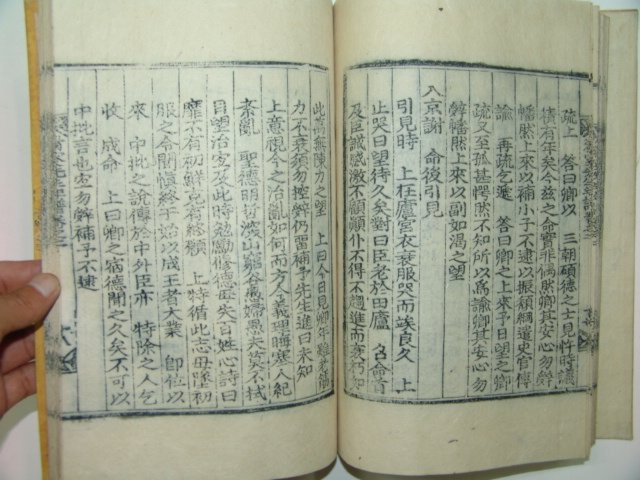 疏上 答曰卿以 三朝碩德之士見忤時議
積有年矣今玆之命實非偶然卿其安心勿辭
幡然上來以補小子不逮以振頹綱遣史官傳
諭 再疏乞遞 答曰卿之上來予日望之卿
疏又至孤甚愕然不知所以爲諭卿其安心勿
辭幡然上來以副如渴之望
入京謝 命後引見
引見時 上在廬宮衣衰服哭而竢良久 上
止哭曰望待久矣對曰臣老於田廬 召命
及臣誠感激不顧顚仆不得不趨進而衰朽如
此萬無陳力之望 上曰今日見卿年
力不衰須勿控辭仍留補予先生進曰未知
上意視今之治亂如何而方今義理晦塞人紀
紊亂 聖德明哲深山窮谷愚婦愚夫莫不拭
目望治宜及此時勉勵修德毋失百姓心詩曰
靡不有初鮮克有終願 上特循此志毋墜初
服之命罔愼終于始以成王者大業 卽位以
來 中批之說傳於中外臣亦 特除之人乞
收 成命 上曰卿之宿德聞之久矣不可以
中批言也宜勿辭補予不逮